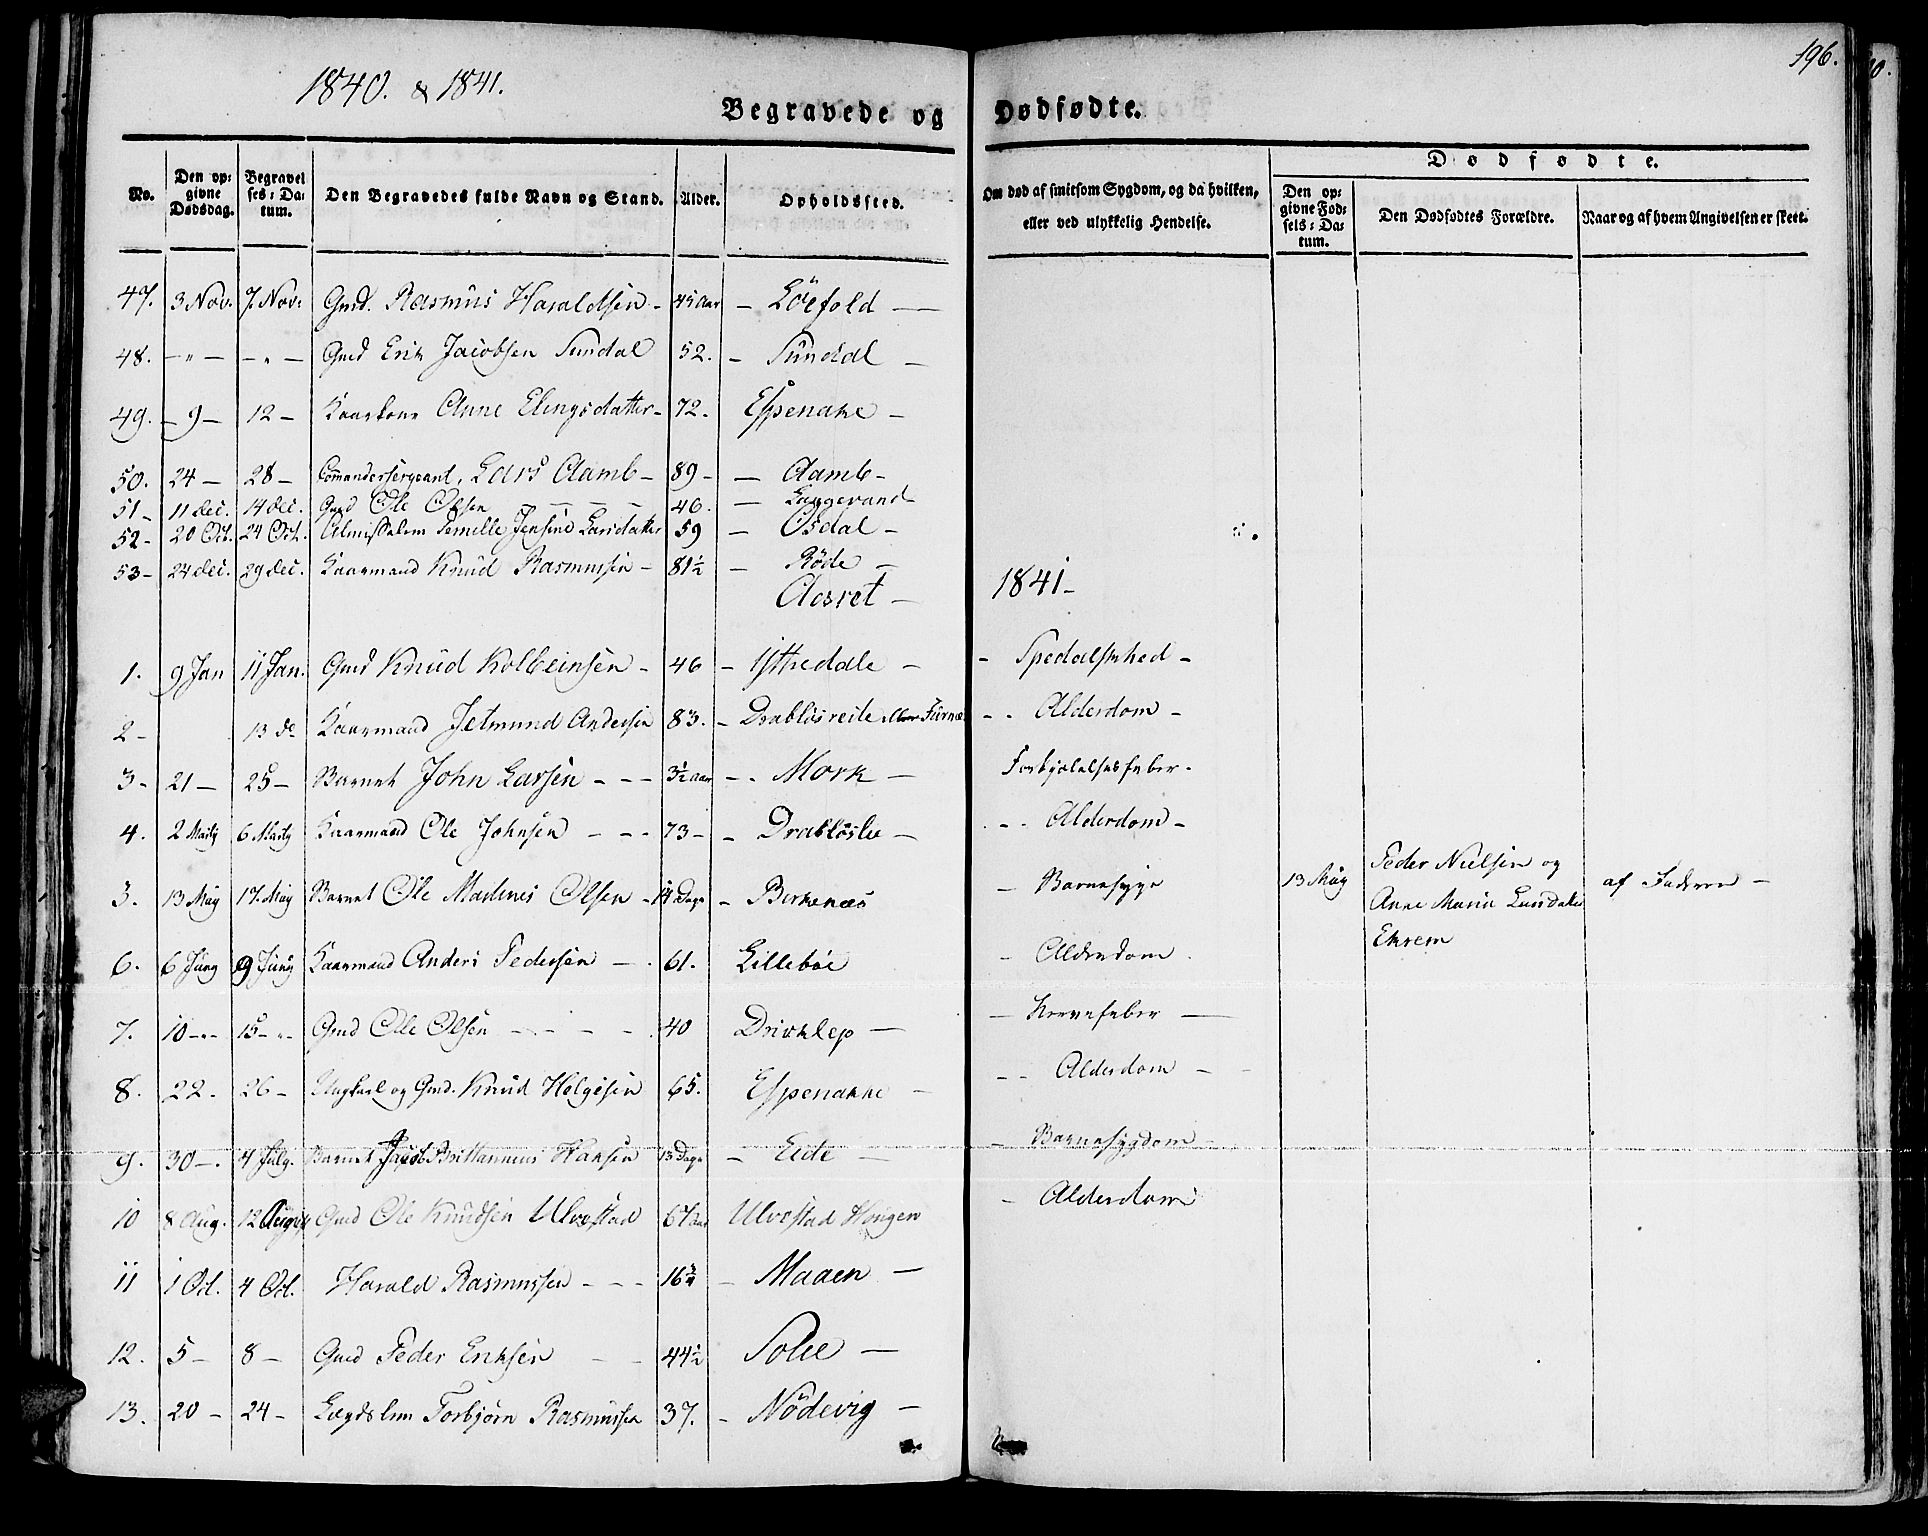 1840. & 1841.
196.
Begravede og Dødfødte.
No.
Den opgivne Dødsdag.
Begravelses-Datum.
Den Begravedes fulde Navn og Stand.
Alder.
Opholdssted.
Om død af smitsom Sygdom, og da hvilken, eller ved ulykkelig Hendelse.
Dødfødte.
Den opgivne Fødsels-Datum.
Den Dødfødtes Forældre.
Naar og af hvem Angivelsen er skeet.
47. 3 Nov. 7. Nov: Gmd. Rasmus Haraldsen - 45 aar - Löefold -
48. - " - - " - Gmd Erik Jacobsen Sundal 52. - Sundal -
49. - 9 - 12 - Kaarkone Anne Elingsdatter - 72. Espenake -
50. 24 - 28 - Commandersergeant, Lars Aamb - 89 - - Aamb -
51 - 11 dec. 14 dec. Gmd Ole Olsen - - - - 46. - Langevand
52 - 20 Oct. 24 Oct. Almisselem Pernille Jensine Larsdatter 59 - Osdal -
53 - 24 dec. 29 dec. Kaarmand Knud Rasmussen - 81½ - Röde -
Aaret - 1841 -
1. 9 Jan 11 Jan. Gmd Knud Kolbeinsen - 46 - Ysthedale - - Spedalskhed -
2 - 13 do Kaarmand Jetmund Andersen 83. - Drabløsreite eller Furnæs - - Alderdom -
3 - 21 - 25 - Barnet John Larsen - - - 3½ aar - - Mork - Forkjølelsesfeber -
4. 2 Marty 6 Marty Kaarmand Ole Johnsen - - - 73 - - Drabløslie - - - Alderdom -
5. 13 May 17. May Barnet Ole Madenis Olsen - 14 Dage - Birkenæs - Barnesyge 13 May Peder Nielsen og af Faderen -
Anne Maria Larsdatter
Ekrem
6. 6 Juny 9 Juny Kaarmand Anders Pedersen - . 61. Lillebøe - Alderdom .
7. 10 - " - 15 - " - Gmd Ole Olsen - - - - 40 Drivklep - - Nervefeber -
8. 22. 26 - Ungkarl og Gmd. Knud Helgesen 65. Espenakke - - - Alderdom - -
9. 30 -. 4 July. Barnet Jacob Brittannius Hansen 13 Dage - Eide - - Barnesygdom -
10 8 Aug. 12 August Gmd Ole Knudsen Ulvestad 67 aar Ulvestad Hougen - Alderdom
11 1 Oct. 4 Oct. Harald Rasmussen - - - 16¾ - Maaen -
12. 5 - 8 - Gmd Peder Eriksen - - 44½ Solie -
13. 20 - 24 - Lægdslem Torbjørn Rasmussen 37. - Nödevig -